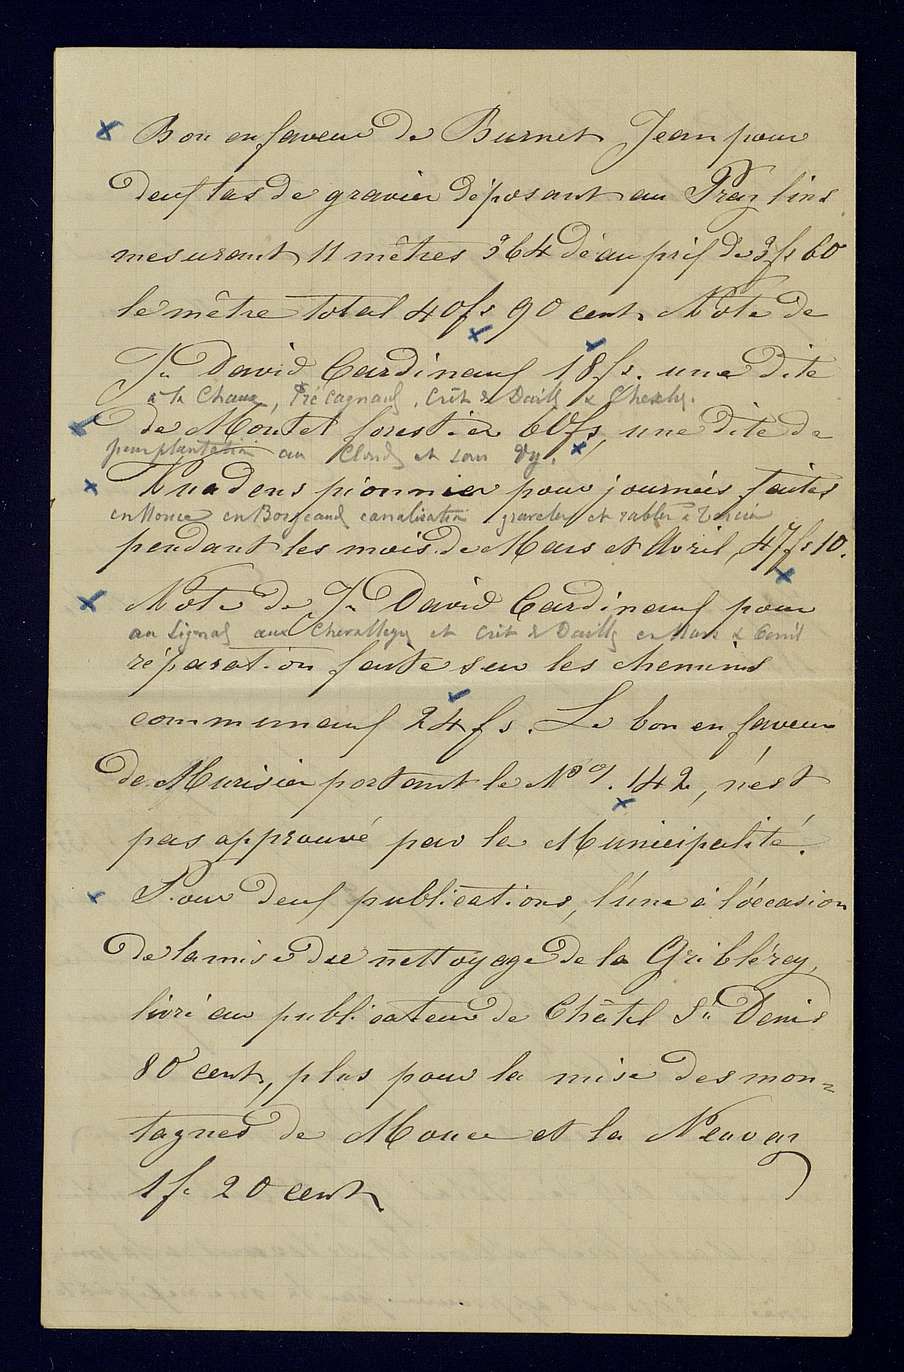 Bon en faveur de Burnet Jean pour
deux tas de gravier déposant au Pray lins
mesurant 11 mètres 364 dé au prix de 3fs 60
le mètre total 40fs 90 cent. Note de
Jn David Cardinaux 18fs. une dite
à la Chaux, Pré cagnaux, Crêt de Dailly &
de Moutel forestier 60fs, une dite de
pour plantation au Clord et sous Vy.
Huadens pionnier pour journées faites
en Mouce en canalisation graveler et rabler à
pendant les mois de Mars et Avril 47fs10.
Note de Jn David Cardinaux pour
au Signal aux Chevalleys et Crêt de Dailly en Mars & Avril
réparation faite sur les chemins
communaux 24fs. Le bon en faveur
de Murisier portant le No 142, n'est
pas approuvé par la Municipalité.
Pour deux publications, l'une à l'occasion
de la mise du nettoyage de la Gribléray,
livré au publicateur de Châtel St Denis
80 cent, plus pour la mise des mon=
tagnes de Mouce et la Neuvaz
1f. 20 cent.